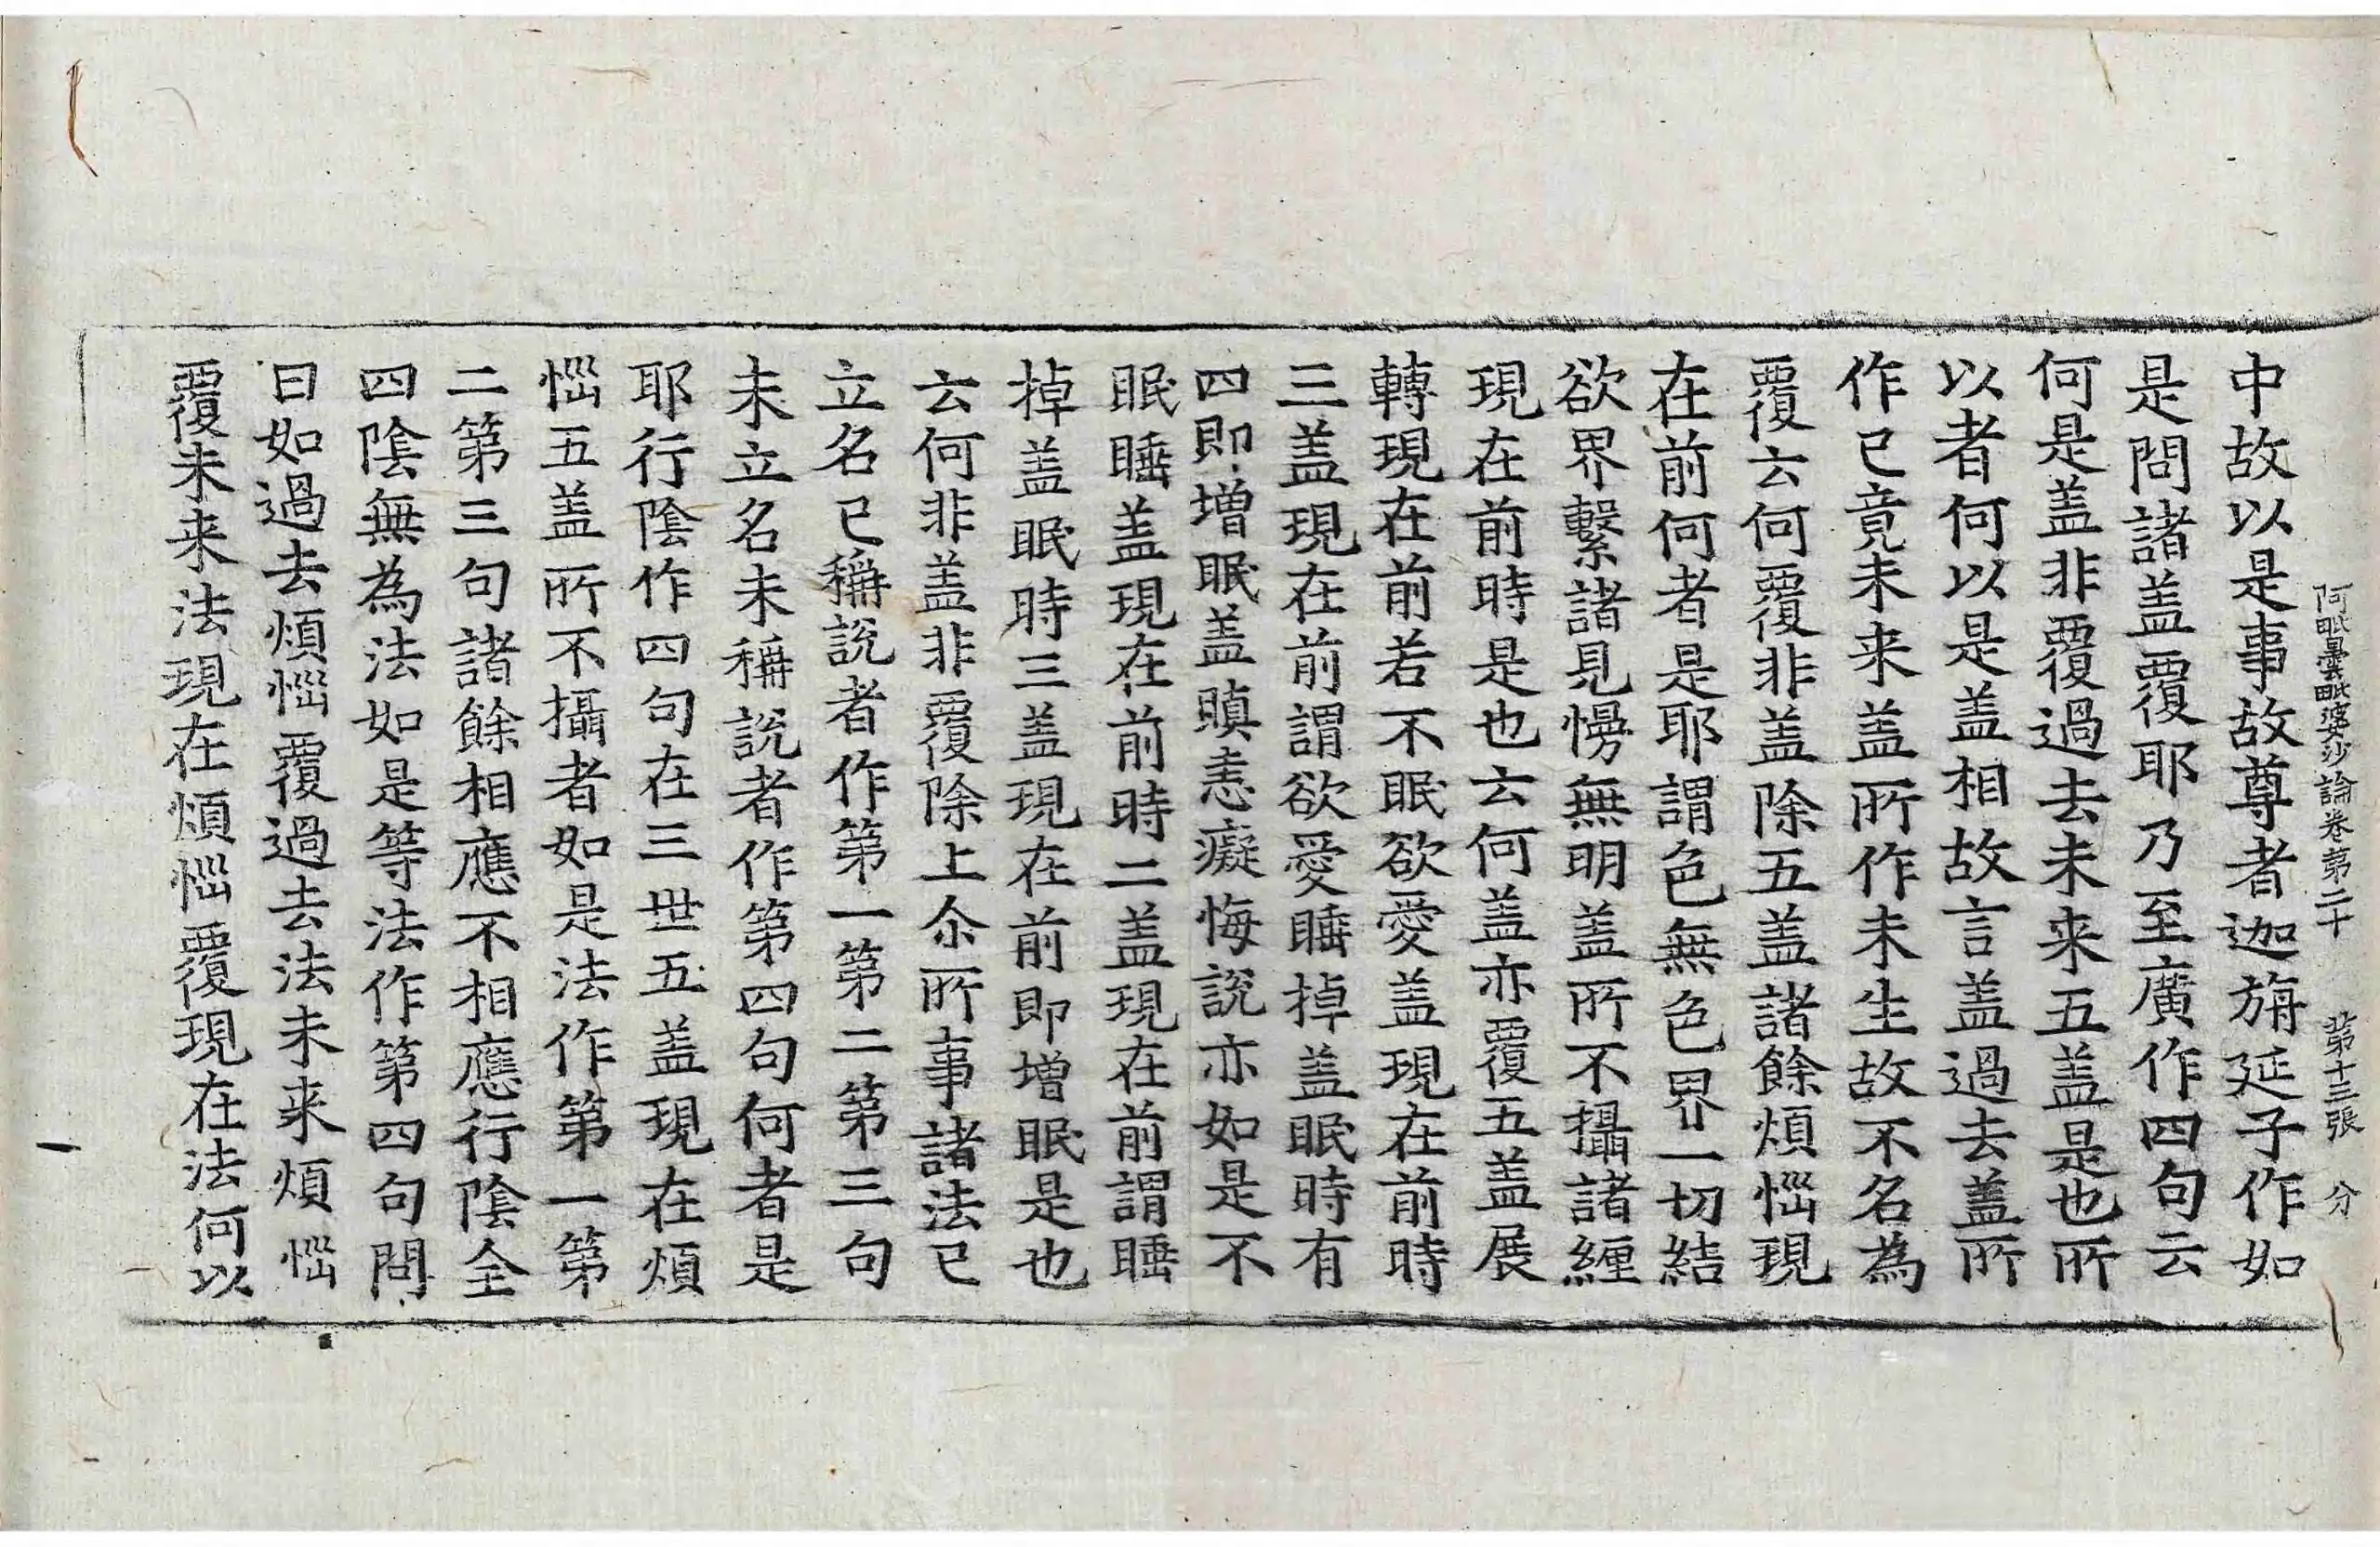 阿毗曇毗婆沙論卷第二十 第十三張 分
中故以是事故尊者迦旃延子作如
是問諸盖覆耶乃至廣作四句云
何是盖非覆過去未来五盖是也所
以者何以是盖相故言盖過去盖所
作已竟未来盖所作未生故不名為
覆云何覆非盖除五盖諸餘煩惱現
在前何者是耶謂色無色界一切結
欲界繫諸見慢無明盖所不攝諸纏
現在前時是也云何盖亦覆五盖展
轉現在前若不眠欲愛盖現在前時
三盖現在前謂欲愛睡掉盖眠時有
四即增眠盖瞋恚癡悔說亦如是不
眠睡盖現在前時二盖現在前謂睡
掉盖眠時三盖現在前即增眠是也
云何非盖非覆除上尒所事諸法已
立名已稱說者作第一第二第三句
未立名未稱說者作第四句何者是
耶行陰作四句在三世五盖現在煩
惱五盖所不攝者如是法作第一第
二第三句諸餘相應不相應行陰全
四陰無為法如是等法作第四句問
曰如過去煩惱覆過去法未来煩惱
覆未来法現在煩惱覆現在法何以